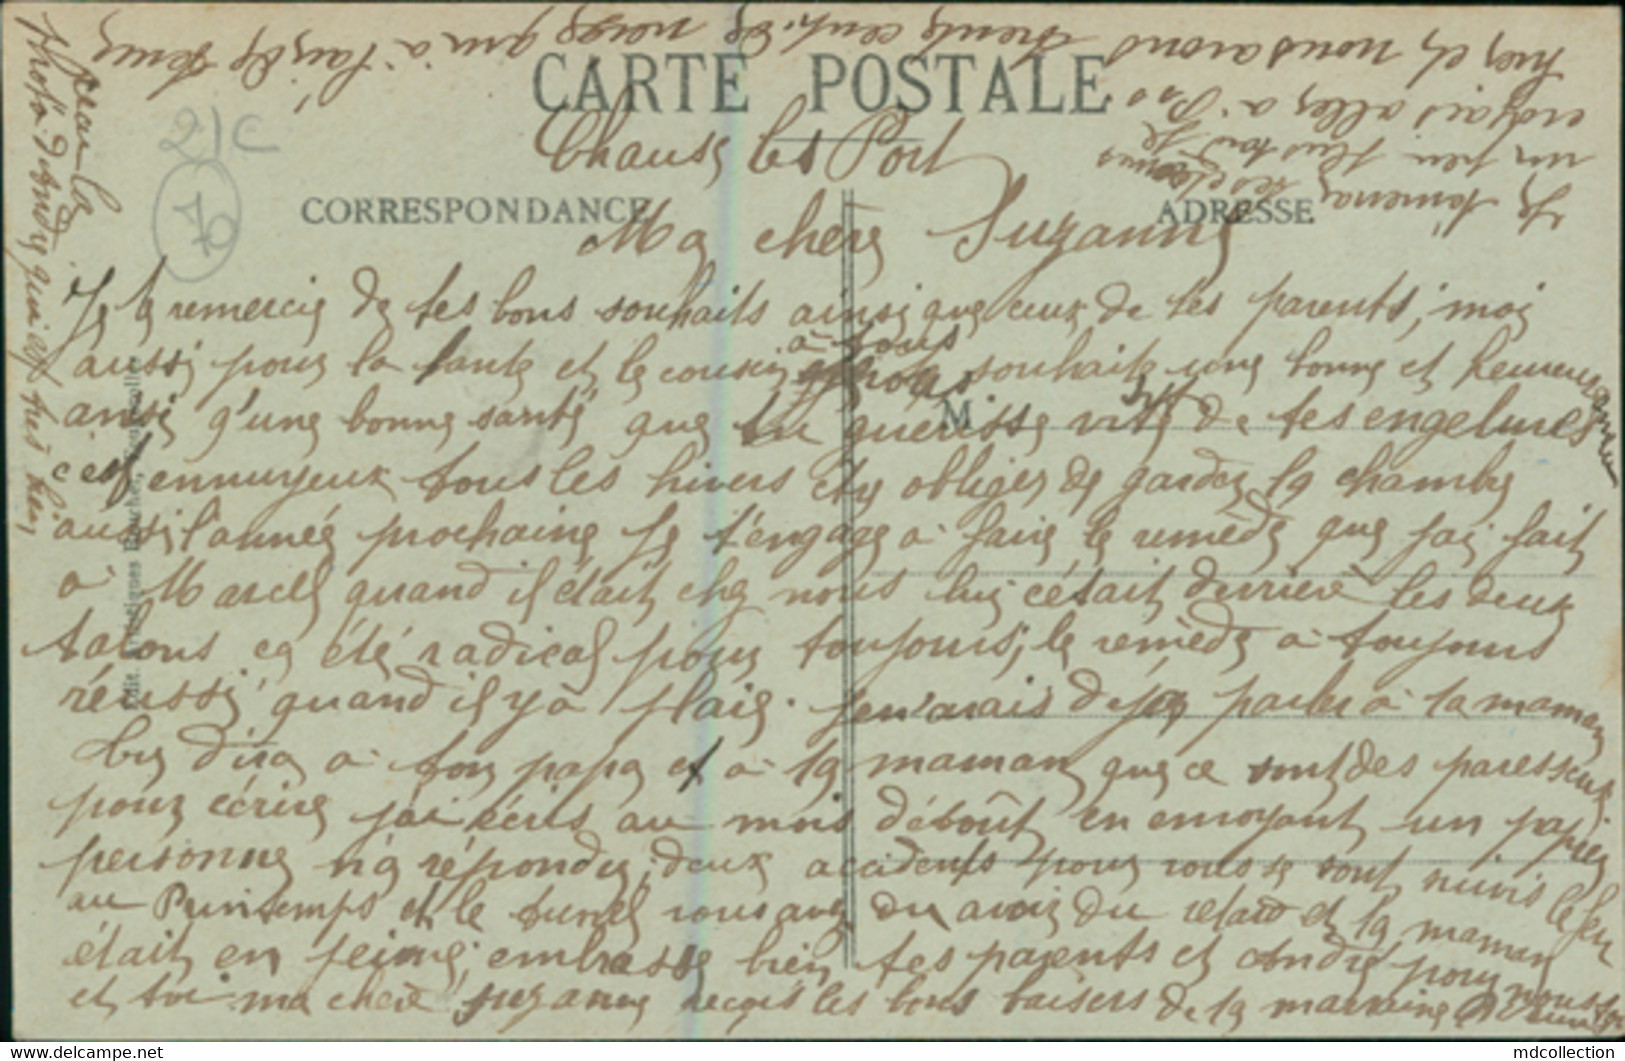 CARTE POSTALE
Chaux les Port
CORRESPONDANCE
ADRESSE
Ma chère Suzanne
Je te remercie de tes bons souhaits ainsi que ceux de tes parents, moi
aussi pour la tante et le cousin à tous souhaite une bonne et heureuse année
ainsi q'une bonne santé que tu guérisse vite de tes engelures
c'est ennuyeux tous les hivers d'être obliger de garder la chambre
aussi l'année prochaine je t'engage à faire le remède que j'ai fait
à Marcel quand il était chez nous lui c'était derrière les deux
talons ça été radical pour toujours, le remède a toujours
réussi quand il y a plaie. j'en avais déjà parler à ta maman
tu dira à ton papa et à ta maman que ce sont des paresseux
pour écrire j'ai écris au mois d'août en envoyant un papier
personne n'a répondu, deux accidents pour vous se sont suivis le feu
au Printemps et le tunnel vous avez du avoir du retard et ta maman
était en peine, embrasse bien tes parents et André pour nous
et toi ma chère Suzanne reçois les bons baisers de ta marraine
M
Edit. Artistiques
un peu plus tôt je
croyais aller à
hier et nous avons trente cent. de neige qui a
photo d'André qui est très bien
21C
70
mdcollection